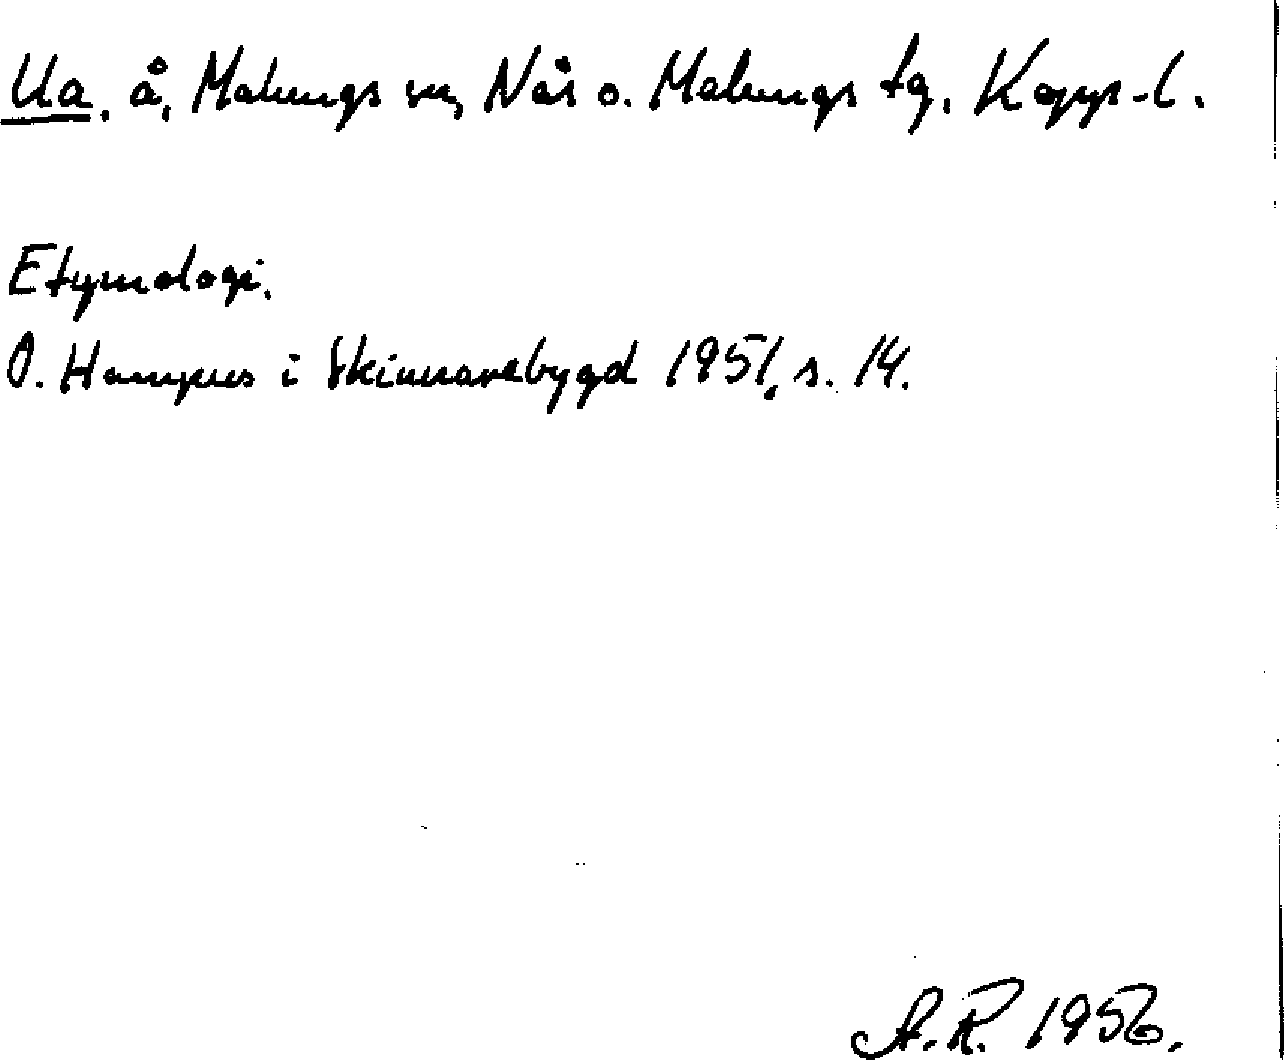 Ua, å, Malungs sn, Nås o. Malungs tg, Kopp-l.
Etymologi.
O. Hampus i Skinnarebygd 1951, s. 14.
A.R. 1956.